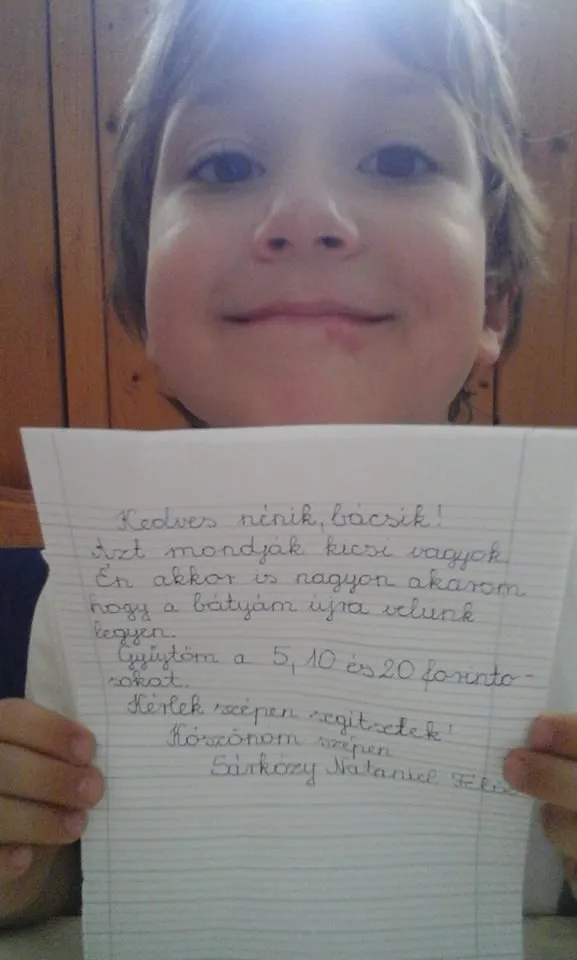 Kedves nénik, bácsik!
Azt mondják kicsi vagyok.
Én akkor is nagyon akarom
hogy a bátyám újra velunk
legyen.
Gyűjtöm a 5, 10 és 20 forinto-
sokat.
Kérlek szépen segitsetek!
Köszönöm szépen
Sárközy Nataniel